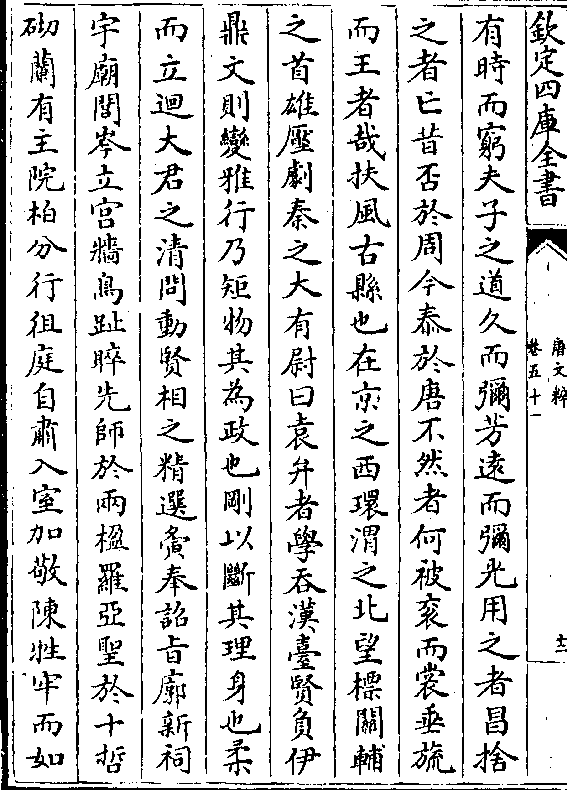 欽定四庫全書
唐文粹
卷五十一
十二
有時而窮夫子之道久而彌芳遠而彌光用之者昌捨
之者亡昔否於周今泰於唐不然者何被衮而裳垂旒
而王者哉扶風古縣也在京之西環渭之北望標關輔
之首雄壓劇秦之大有尉曰袁弁者學吞漢臺賢負伊
鼎文則變雅行乃矩物其為政也剛以斷其理身也柔
而立迴大君之清問動賢相之精選爰奉詔旨廓新祠
宇廟閣岑立宫牆鳥趾睟先師於兩楹羅亞聖於十哲
砌蘭有主院柏分行徂庭自肅入室加敬陳牲牢而如